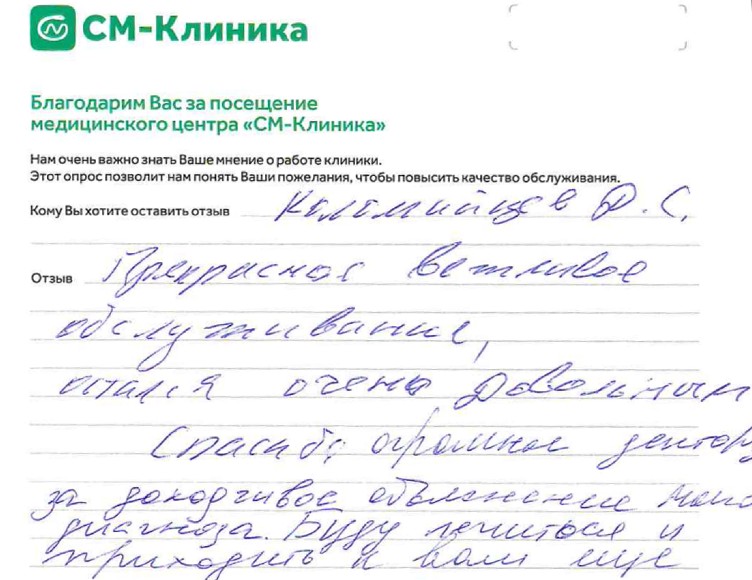 СМ-Клиника
Благодарим Вас за посещение
медицинского центра «СМ-Клиника»
Нам очень важно знать Ваше мнение о работе клиники.
Этот опрос позволит нам понять Ваши пожелания, чтобы повысить качество обслуживания.
Кому Вы хотите оставить отзыв Коломийцев Д.С.
Отзыв Прекрасное вежливое
обслуживание,
остался очень довольным
Спасибо огромное доктору
за доходчивое объяснение моего
диагноза. Буду лечиться и
приходить к вам еще